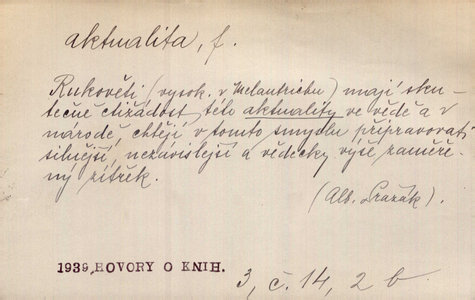 aktualita, f.
Rukověti (vysok. v Melantrichu) mají sku-
tečně ctižádost této aktuality ve vědě a v
národě, chtějí v tomto smyslu připravovati
silnější, nezávislejší a vědecky výše zaměře-
ný zítřek.
(Alb. Pražák).
1939, HOVORY O KNIH.
3, č. 14, 2 b.